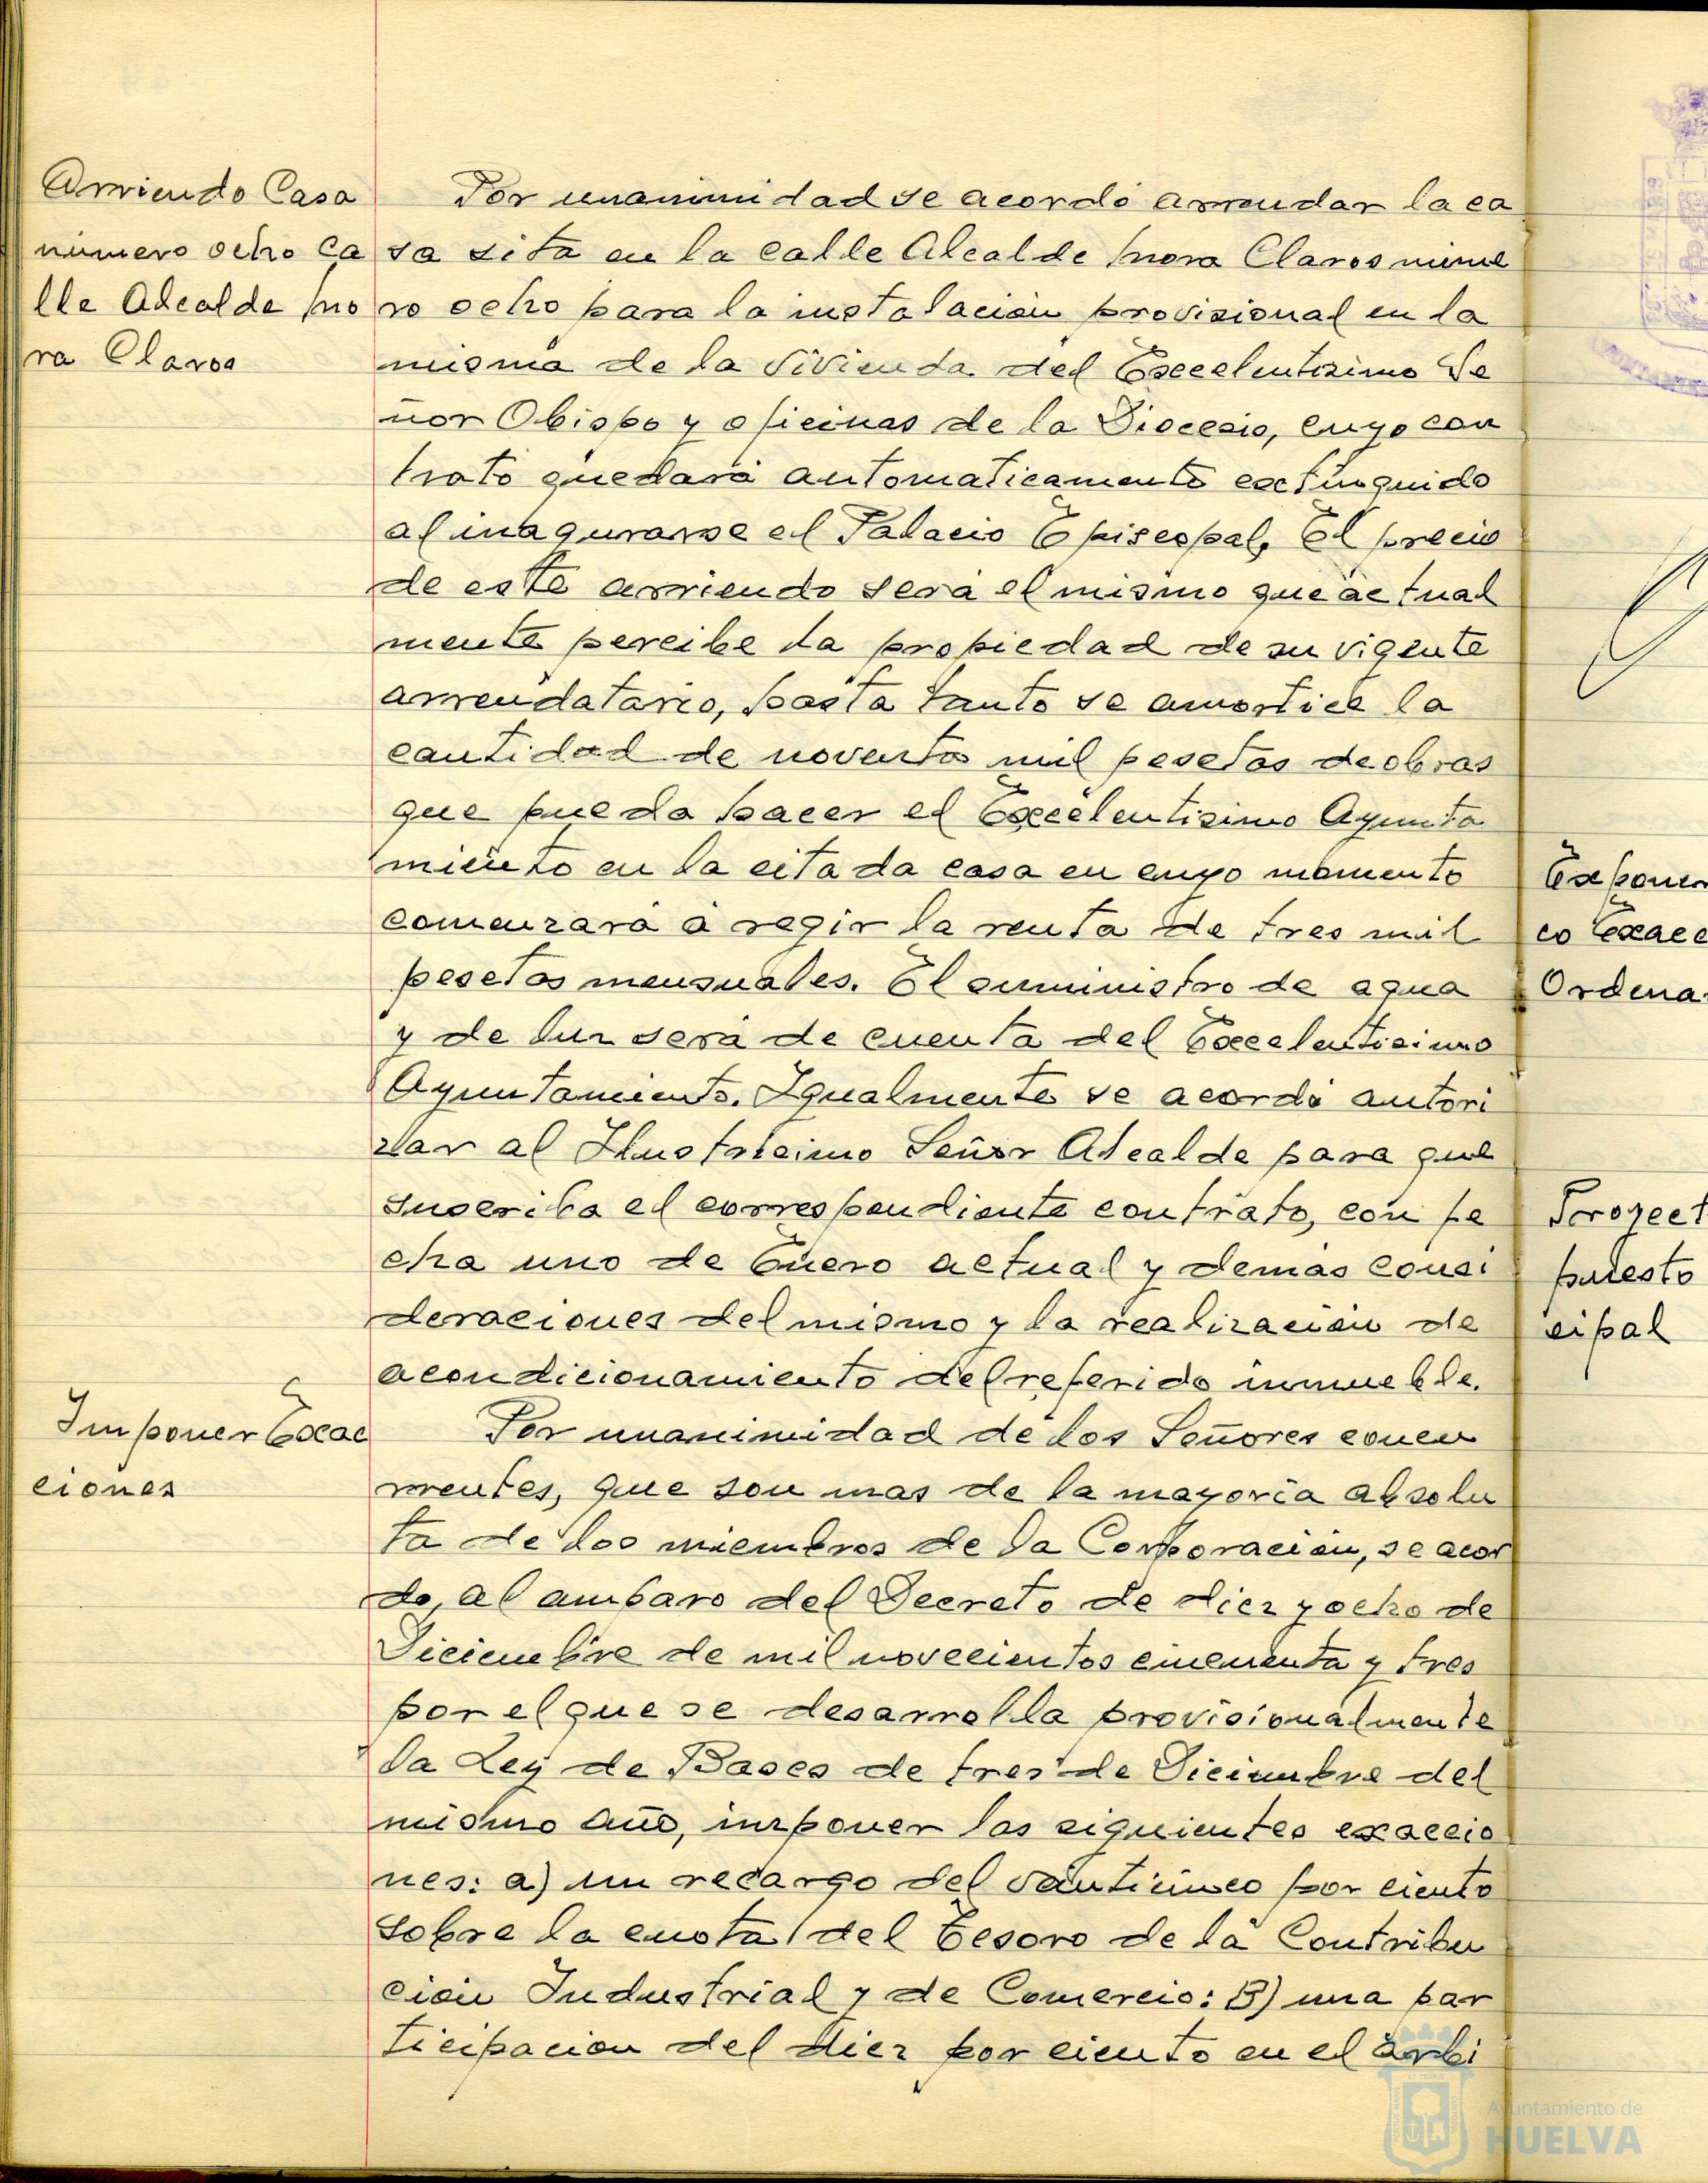 Arriendo Casa
número ocho Ca
lle Alcalde Mo
ra Claros
Por unanimidad se acordó arrendar la ca
sa sita en la calle Alcalde Mora Claros núme
ro ocho para la instalación provisional en la
misma de la vivienda del Excelentisimo Se
ñor Obispo y oficinas de la Diocesis, cuyo con
trato quedará automaticamente extinguido
al inagurarse el Palacio Episcopal, El precio
de este arriendo será el mismo que actual
mente percibe la propiedad de su vigente
arrendatario, hasta tanto se amortice la
cantidad de noventa mil pesetas de obras
que pueda hacer el Excelentisimo Ayunta
miento en la citada casa en cuyo momento
comenzará a regir la renta de tres mil
pesetas mensuales. El suministro de agua
y de luz será de cuenta del Excelentisimo
Ayuntamiento. Igualmente se acordó autori
zar al Ilustrisimo Señor Alcalde para que
suscriba el correspondiente contrato, con fe
cha uno de Enero actual y demás consi
deraciones del mismo y la realización de
acondicionamiento del referido inmueble.
Imponer Exac
ciones
Por unanimidad de los Señores concu
rrentes, que son mas de la mayoria absolu
ta de los miembros de la Corporación, se acor
do, al amparo del Decreto de diez y ocho de
Diciembre de mil novecientos cincuenta y tres
por el que se desarrolla provisionalmente
la Ley de Bases de tres de Diciembre del
mismo año, imponer las siguientes exaccio
nes: a) un recargo del veinticinco por ciento
sobre la cuota del Tesoro de la Contribu
ción Industrial y de Comercio: B) una par
ticipacion del diez por ciento en el arbi
Exponer
co Exacc
Ordena
Proyect
puesto
cipal
Ayuntamiento de
HUELVA